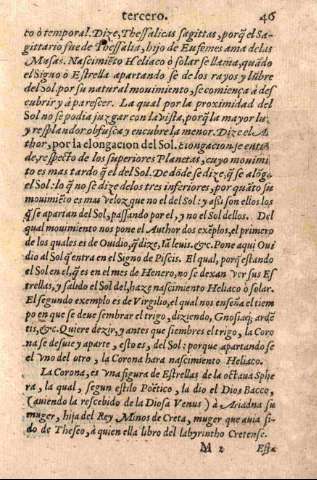 tercero. 46
to ò temporal. Dize, Thessalicas sagittas, porq̃ el Sa-
gittario fue de Thessalia, hijo de Eufemes ama de las
Musas. Nascimiẽto Heliaco ò solar se llama, quãdo
el Signo ò Estrella apartando se de los rayos y lũbre
del Sol por su natural mouimiento, se comiença à des
cubrir y à parescer. La qual por la proximidad del
Sol no se podia juzgar con la vista, porq̃ la mayor luz
y resplandor obfusca y encubre la menor. Dize el Au
thor, por la elongacion del Sol. Elongacion se entiẽ
de, respecto de los superiores Planetas, cuyo mouimiẽ
to es mas tardo q̃ el del Sol. De dõde se dize, q̃ se alõga
el Sol: lo q̃ no se dize de los tres inferiores, por quãto su
mouimiẽto es mas veloz que no el del Sol: y assi son ellos los
q̃ se apartan del Sol, passando por el, y no el Sol dellos. Del
qual mouimiento nos pone el Author dos exẽplos, el primero
de los quales es de Ouidio, q̃ dize, Iã leuis. &c. Pone aqui Oui
dio al Sol q̃ entra en el Signo de Piscis. El qual, porq̃ estando
el Sol en el, q̃ es en el mes de Henero, no se dexan ver sus Es
trellas, y salido el Sol del, haze nascimiento Heliaco ò solar.
El segundo exemplo es de Virgilio, el qual nos enseña el tiem
po en que se deue sembrar el trigo, diziendo, Gnosiaq; ardẽ
tis, &c. Quiere dezir, y antes que siembres el trigo, la Coro
na se desuie y aparte, esto es, del Sol: porque apartando se
el vno del otro, la Corona hara nascimiento Heliaco.
La Corona, es vna figura de Estrellas de la octaua Sphe
ra, la qual, segun estilo Poëtico, la dio el Dios Bacco,
(auiendo la rescebido de la Diosa Venus) à Ariadna su
muger, hija del Rey Minos de Creta, muger que auia si-
do de Theseo, à quien ella libro del labyrintho Cretense.
M 2 Esta